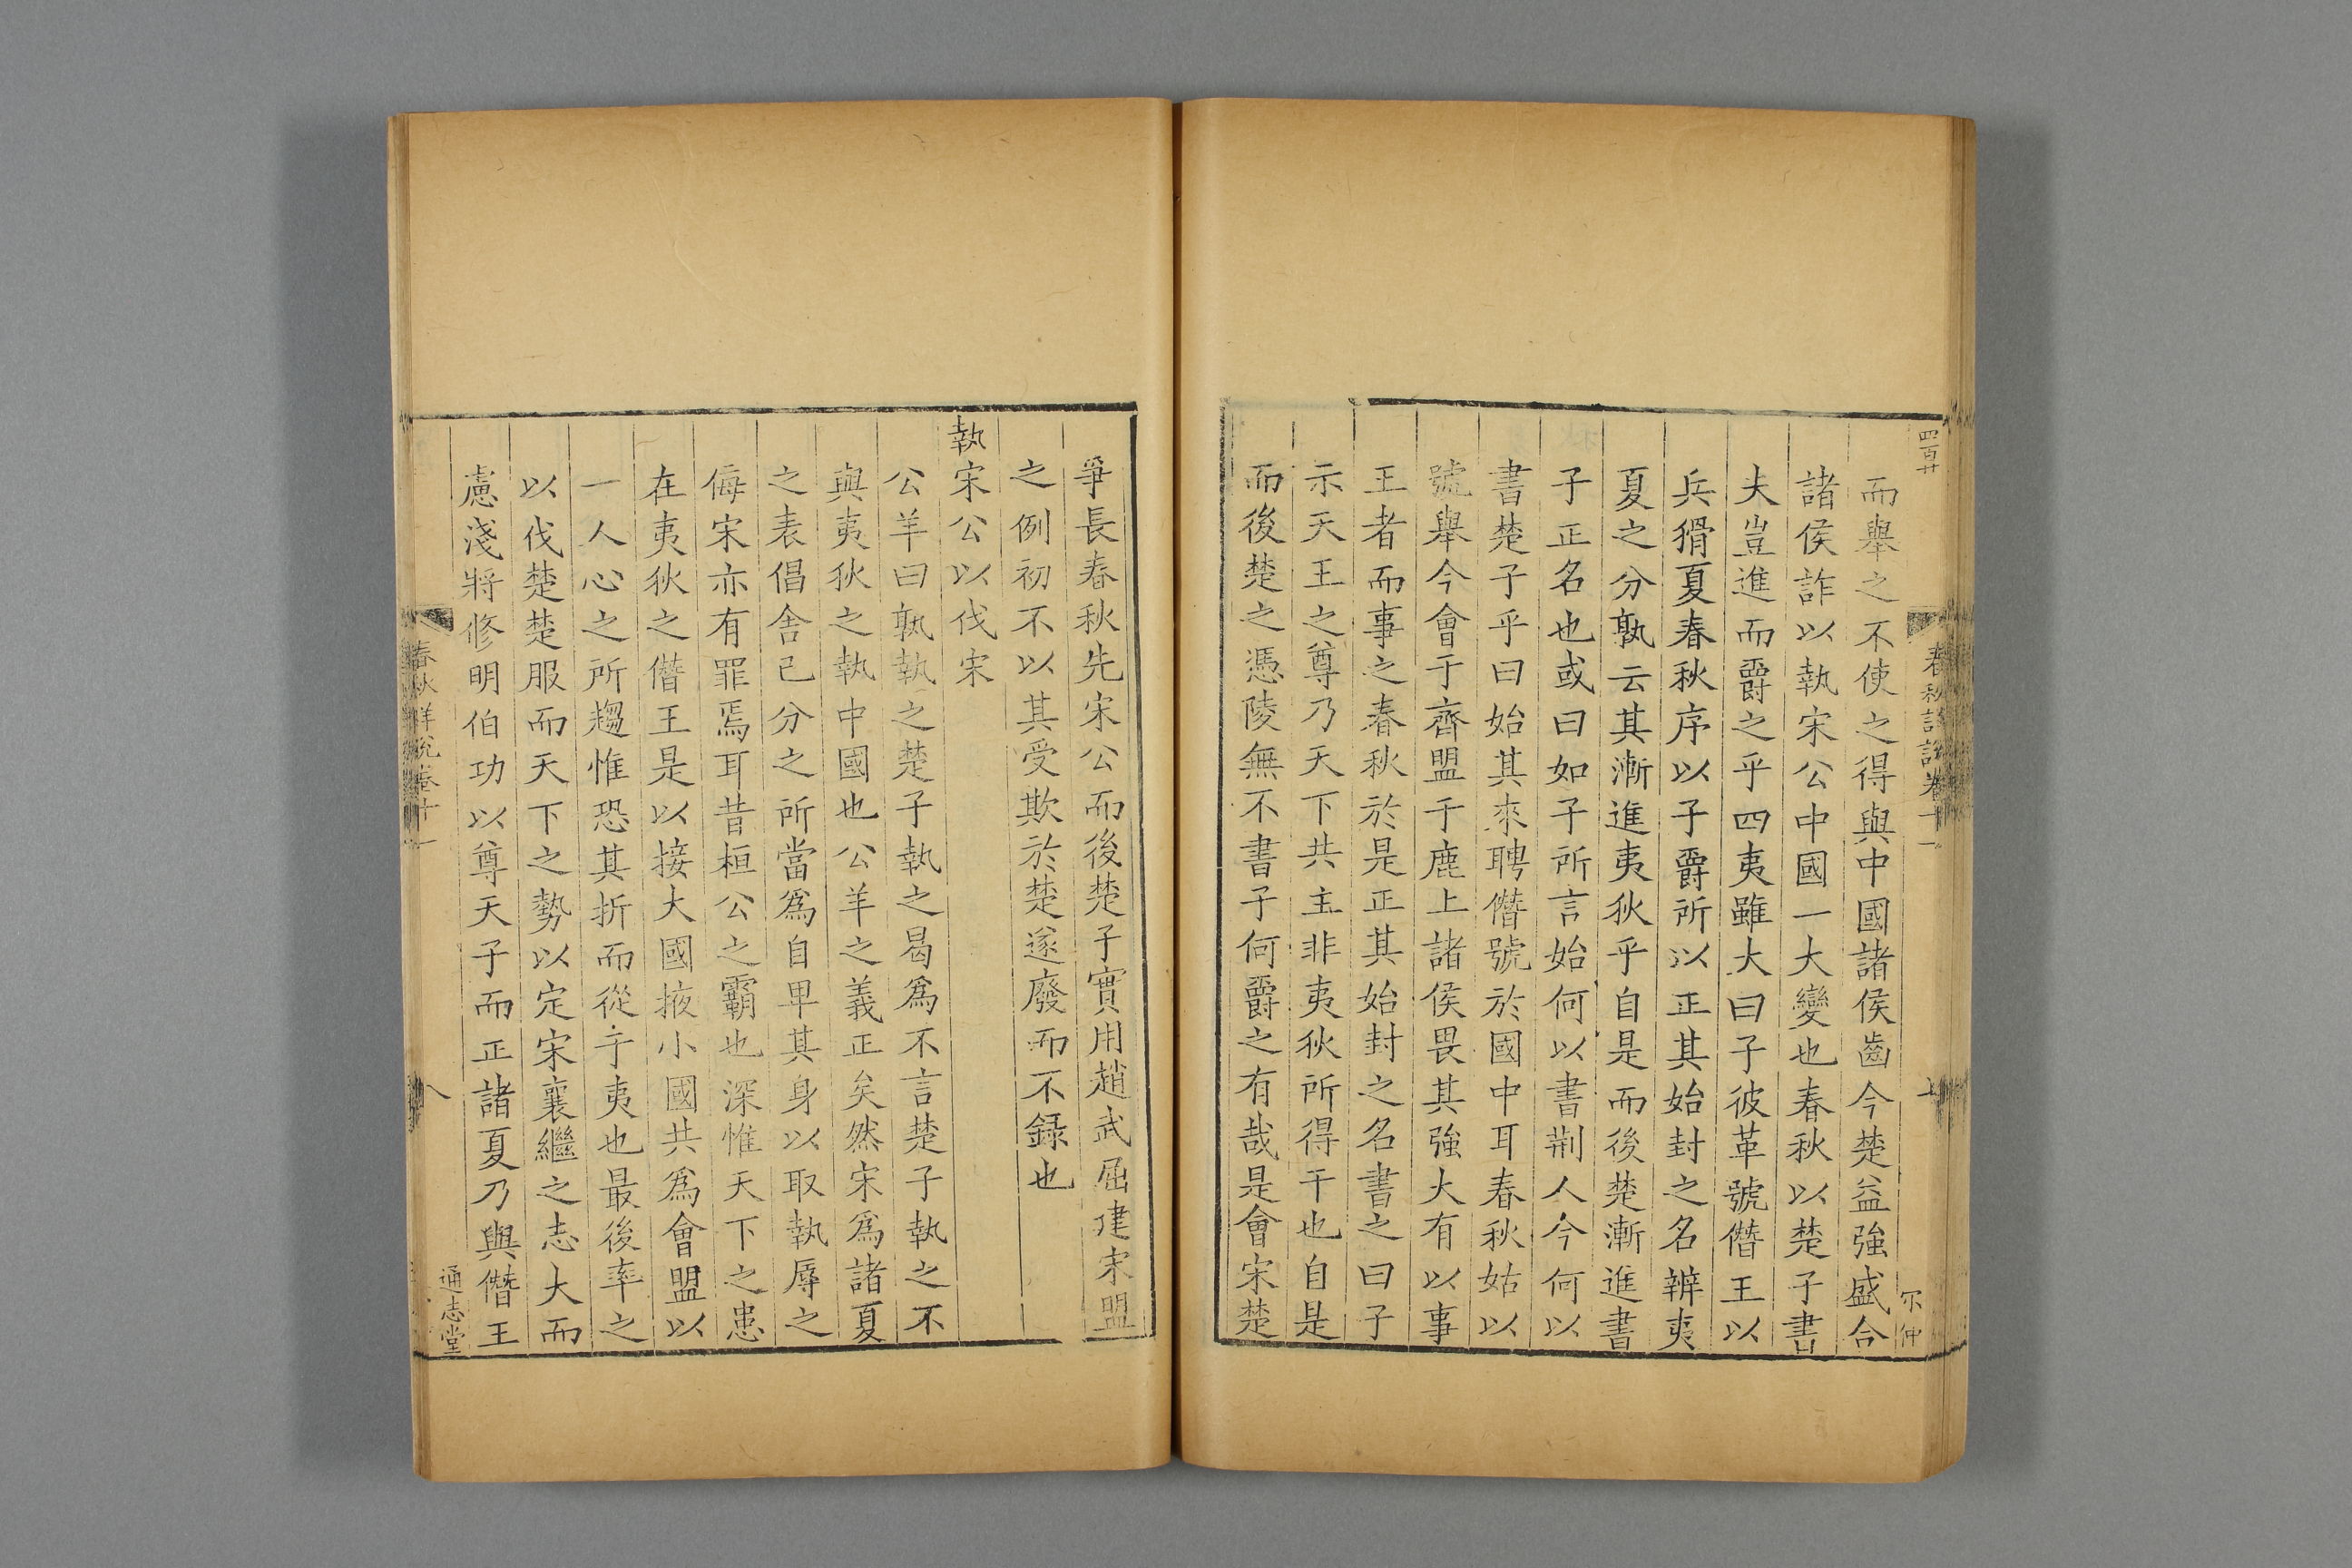 四百廿
春秋詳說卷十一
七
仲
而舉之不使之得與中國諸侯齒今楚益強盛合
諸侯詐以執宋公中國一大變也春秋以楚子書
夫豈進而爵之乎四夷雖大曰子彼革號僭王以
兵猾夏春秋序以子爵所以正其始封之名辨夷
夏之分孰云其漸進夷狄乎自是而後楚漸進書
子正名也或曰如子所言始何以書荆人今何以
書楚子乎曰始其來聘僭號於國中耳春秋姑以
號舉今會于齊盟于鹿上諸侯畏其強大有以事
王者而事之春秋於是正其始封之名書之曰子
示天王之尊乃天下共主非夷狄所得干也自是
而後楚之憑陵無不書子何爵之有哉是會宋楚
爭長春秋先宋公而後楚子實用趙武屈建宋盟
之例初不以其受欺於楚遂廢而不錄也
執宋公以伐宋
公羊曰孰執之楚子執之曷爲不言楚子執之不
與夷狄之執中國也公羊之義正矣然宋爲諸夏
之表倡舍己分之所當爲自卑其身以取執辱之
侮宋亦有罪焉耳昔桓公之霸也深惟天下之患
在夷狄之僭王是以接大國掖小國共爲會盟以
一人心之所趨惟恐其折而從于夷也最後率之
以伐楚楚服而天下之勢以定宋襄繼之志大而
慮淺將修明伯功以尊天子而正諸夏乃與僭王
春秋詳說卷十一
八
通志堂